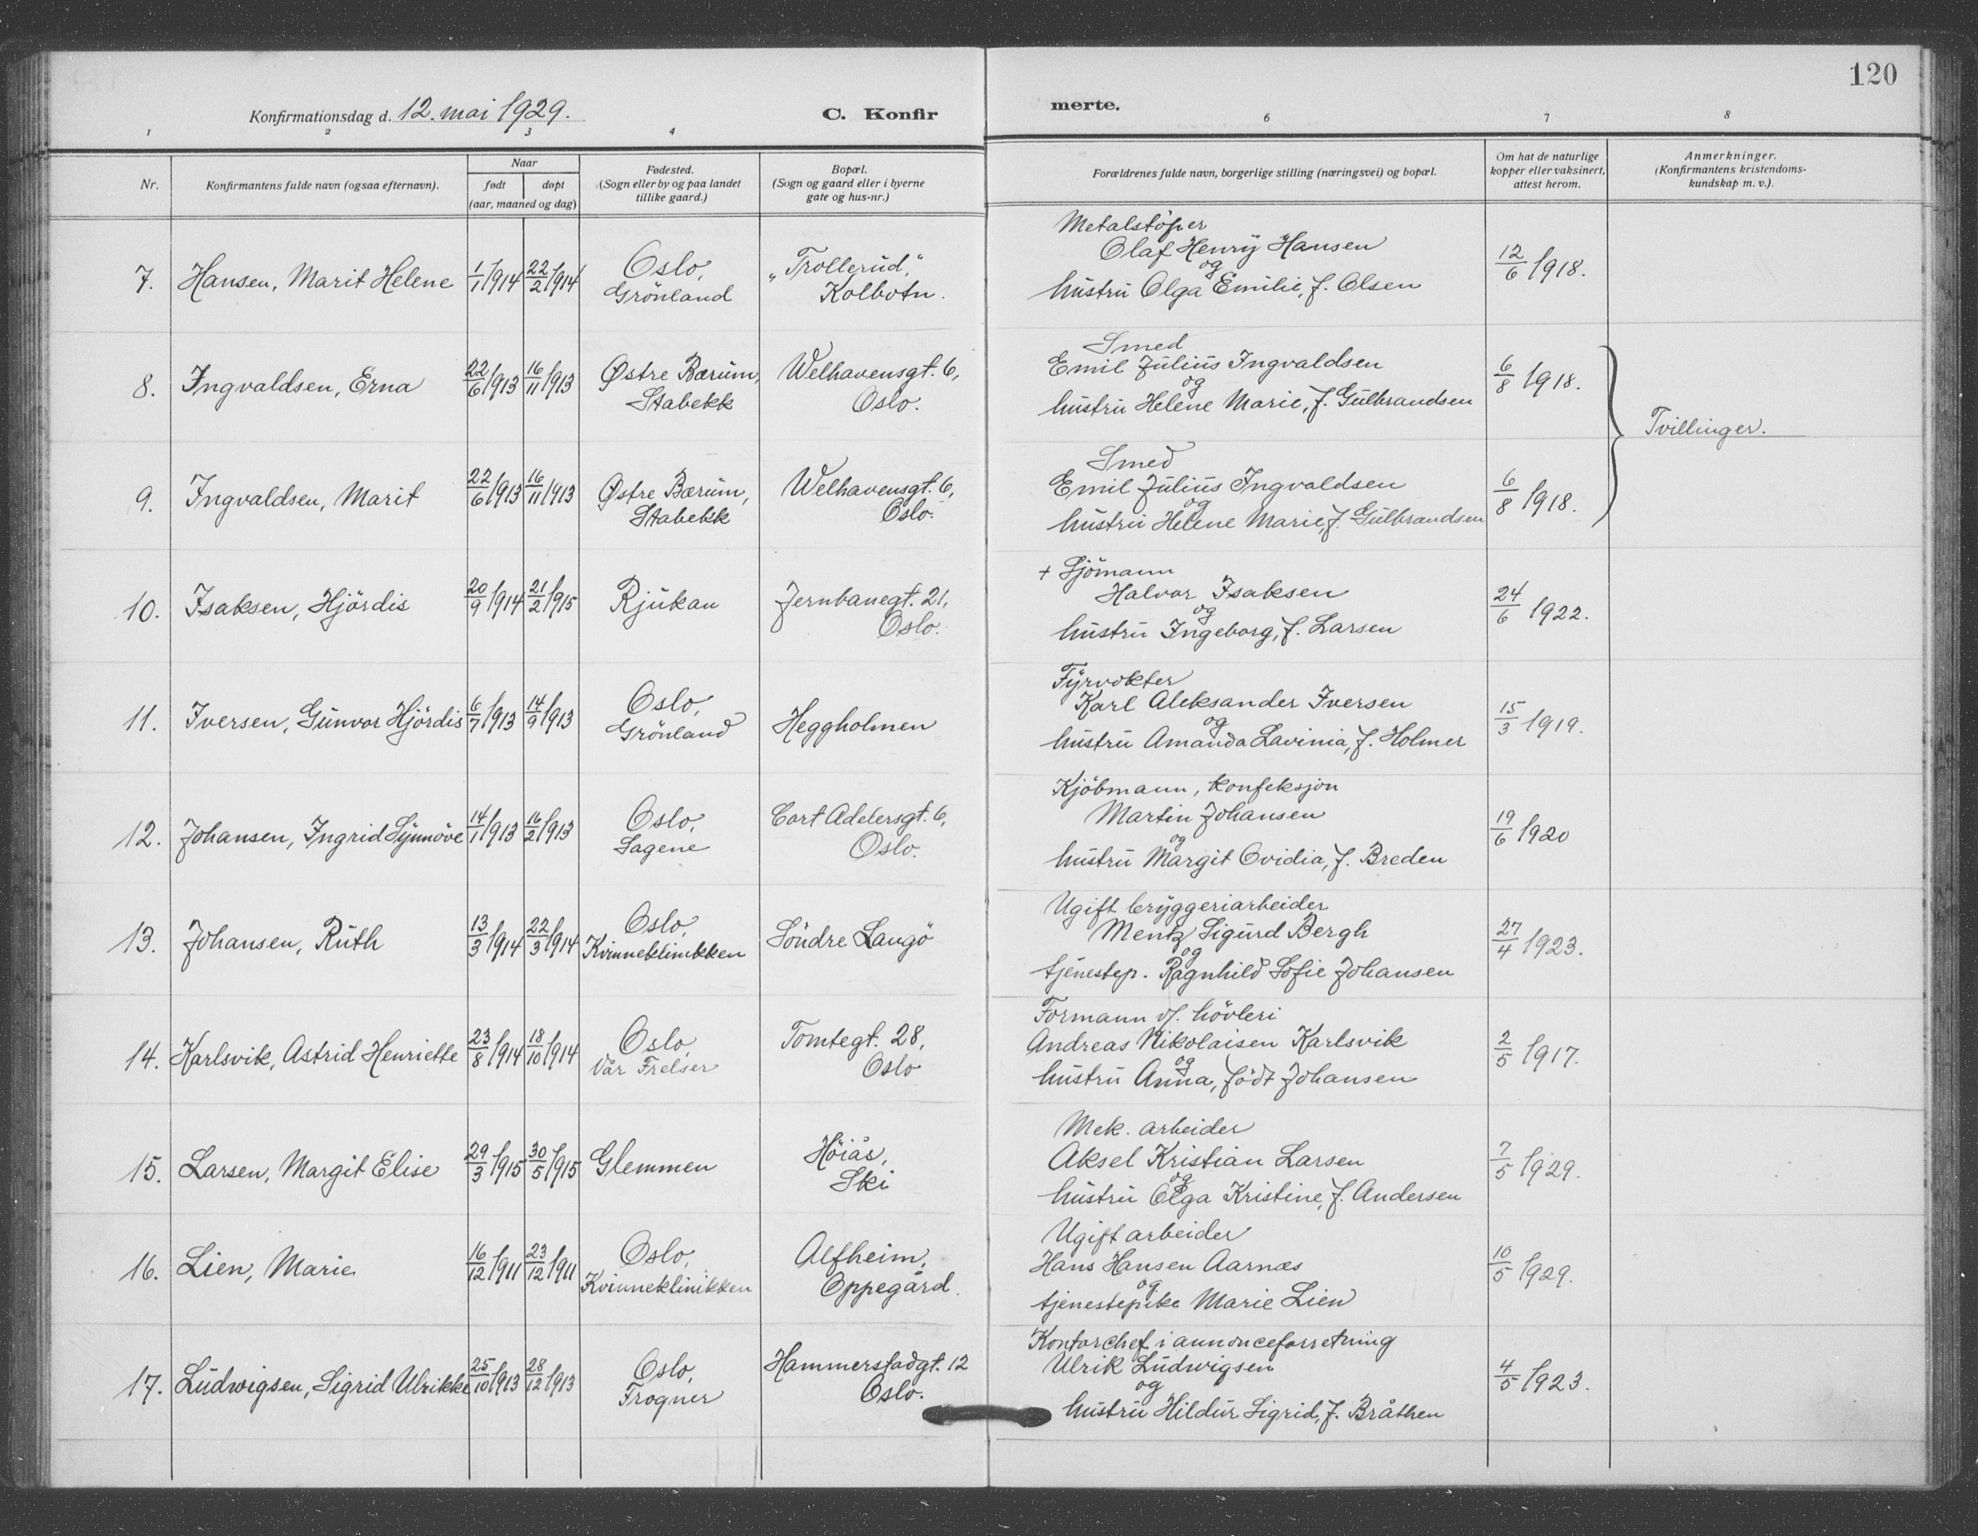 120
Konfirmationsdag d. 12. mai 1929.
C. Konfir
merte.
1 2 3 4 6 7 8
Nr.
Konfirmantens fulde navn (ogsaa efternavn).
Naar
født døpt
(aar, maaned og dag)
Fødested.
(Sogn eller by og paa landet
tillike gaard.)
Bopæl.
(Sogn og gaard eller i byerne
gate og hus-nr.)
Forældrenes fulde navn, borgerlige stilling (næringsvei) og bopæl.
Om hat de naturlige
kopper eller vaksinert,
attest herom.
Anmerkninger.
(Konfirmantens kristendoms-
kundskap m. v.).
7. Hansen, Marit Helene 1/1 1914 22/2 1914
Oslo,
Grönland
"Trollerud",
Kolbotn.
Metalstöper
Olaf Henry Hansen
og
hustru Olga Emilie, f. Olsen
12/6 1918.
8. Ingvaldsen, Erna 22/6 1913 16/11 1913
Østre Bærum,
Stabekk
Welhavensgt. 6,
Oslo.
Smed
Emil Julius Ingvaldsen
og
hustru Helene Marie, f. Gulbrandsen
6/8 1918.
Tvillinger.
9. Ingvaldsen, Marit 22/6 1913 16/11 1913
Østre Bærum,
Stabekk
Welhavensgt. 6,
Oslo.
Smed
Emil Julius Ingvaldsen
og
hustru Helene Marie, f. Gulbrandsen
6/8 1918.
10. Isaksen, Hjördis 20/9 1914 21/2 1915
Rjukan
Jernbanegt. 21,
Oslo.
+ Sjömann
Halvor Isaksen
og
hustru Ingeborg, f. Larsen
24/6 1922.
11. Iversen, Gunvor Hjördis 6/7 1913 14/9 1913
Oslo,
Grönland
Heggholmen
Fyrvokter
Karl Aleksander Iversen
og
hustru Amanda Lavinia, f. Holmer
15/3 1919.
12. Johansen, Ingrid Synnöve 14/1 1913 16/2 1913
Oslo,
Sagene
Cort Adelersgt. 6,
Oslo.
Kjöbmann, konfeksjon
Martin Johansen
og
hustru Margit Ovidia, f. Breden
19/6 1920
13. Johansen, Ruth 13/3 1914 22/3 1914
Oslo,
Kvinneklinikken
Söndre Langö
Ugift bryggeriarbeider
Mentz Sigurd Bergh
og
tjenestep. Ragnhild Sofie Johansen
27/4 1923.
14. Karlsvik, Astrid Henriette 23/8 1914 18/10 1914
Oslo,
Vår Frelser
Tomtegt. 28,
Oslo
Formann v/. hövleri
Andreas Nikolaisen Karlsvik
og
hustru Anna, födt Johansen
2/5 1917.
15. Larsen, Margit Elise 29/3 1915 30/5 1915
Glemmen
Høiås,
Ski
Mek. arbeider
Aksel Kristian Larsen
og
hustru Olga Kristine, f. Andersen
7/5 1929.
16. Lien, Marie 16/12 1911 23/12 1911
Oslo,
Kvinneklinikken
Alfheim,
Oppegård.
Ugift arbeider
Hans Hansen Aarnæs
og
tjenestepike Marie Lien
10/5 1929.
17. Ludwigsen, Sigrid Ulrikke 25/10 1913 28/12 1913
Oslo,
Frogner
Hammerstadgt. 12
Oslo.
Kontorchef i annonceforretning
Ulrik Ludwigsen
og
hustru Hildur Sigrid, f. Bråthen
4/5 1923.